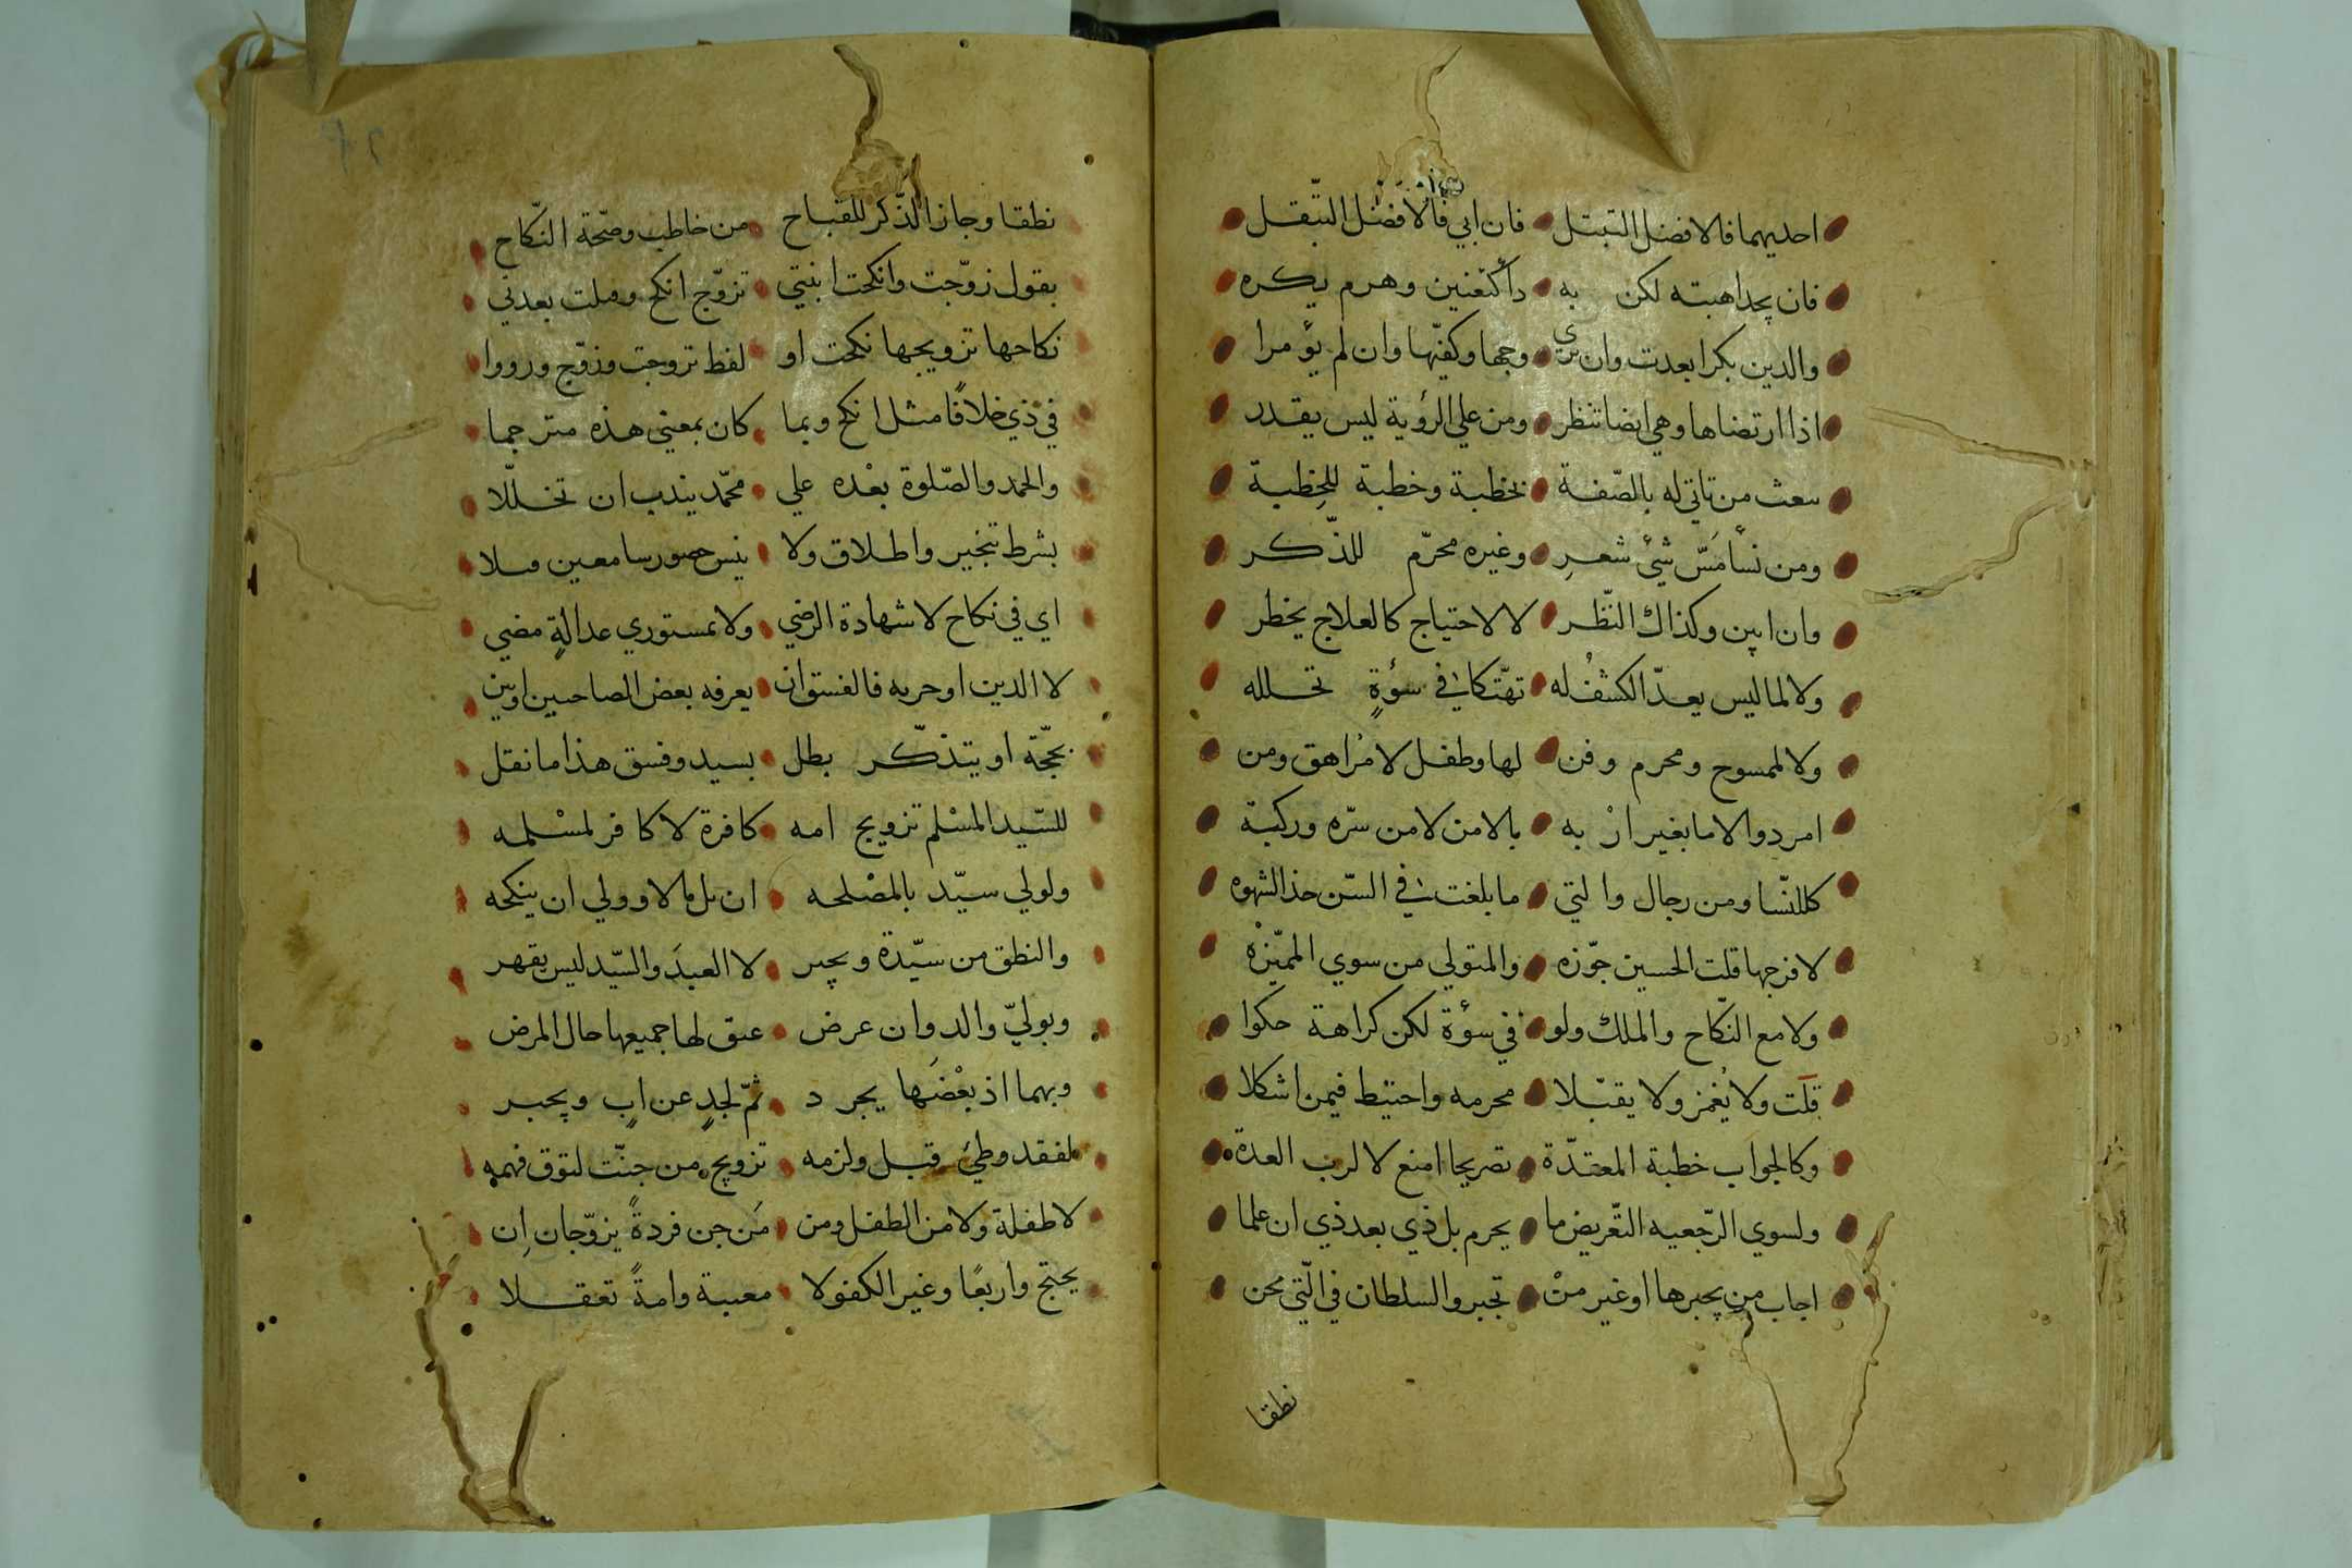 احديهما فالافضل التبتل فان ابي فالافضل التبقل
فان يجد اهبته لكن به داكتعنين وهرم يكره
والدين بكرا بعدت وان يري وجها وكفيها وان لم يؤمرا
اذا ارتضاها وهي ايضا تنظر ومن علي الرؤية ليس يقدر
بعث من تاتي له بالصفة بخطبة وخطبة للخطبة
ومن نسا مس شئ شعر وغيره محرم للذكر
وان ابين وكذاك النظر لا لاحتياج كالعلاج يخطر
ولا لما ليس يعد الكشف له تهتكا في سوءة تخلله
ولا لممسوح ومحرم وقن لها وطفل لا مراهق ومن
امرد والاما بغير ان به بالامن لا من سره وركبة
كللنسا ومن رجال والتي ما بلغت في السن حذ الشهوه
لا فرجها قلت الحسين جوزه والمتولي من سوي المميزه
ولا مع النكاح والملك ولو في سوءة لكن كراهة حكوا
قلت ولا يغمز ولا يقبلا محرمه واحتيط فيمن اشكلا
وكالجواب خطبة المعتدة تصريحا امنع لا لرب العدة
ولسوي الرجعيه التعريض ما يحرم بل ذي بعد ذي ان علما
اجاب من يجبرها او غير من تجبر والسلطان في التي تجن
نطقا
نطقا وجاز الذكر للقباح من خاطب وصحة النكاح
بقول زوجت وانكحت ابنتي تزوج انكح وقبلت بعد تي
نكاحها تزويجها نكحت او لفظ تزوجت وزوج ورووا
في ذي خلافا مثل انكح وبما كان بمعني هذه مترجما
والحمد والصلوة بعده علي محمد يندب ان تخللا
بشرط تنجيز واطلاق ولا ينس حضور سامعين قبلا
اي في نكاح لا شهادة الرضي ولا بمستوري عدالة مضي
لا الدين او حريه فالفسق ان يعرفه بعض الصاحبين او يبن
بحجة او يتذكر بطل بسيد وفسق هذا ما نقل
للسيد المسلم تزويج امه كافرة لا كافر لمسلمه
ولولي سيد بالمصلحه ان يل مالا وولي ان ينكحه
والنطق من سيدة ويجبر لا العبد والسيد ليس يقهر
وبولي والد وان عرض عتق لها جميعها حال المرض
وبهما اذ بعضها يجرد ثم لجد عن اب ويجبر
لفقد وطئ قبل ولزمه تزويج من جنت لتوق فهمه
لا طفلة ولا من الطفل ومن من جن فردة يزوجان ان
يحتج واربعا وغير الكفو لا معيبة وامة تعقلا